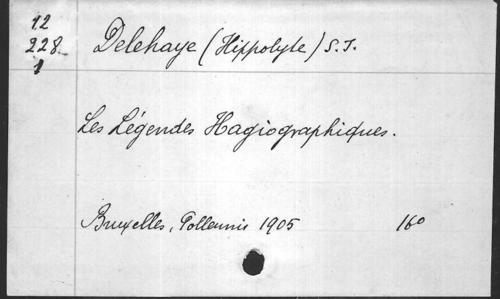 12
228
1
Delehaye (Hippolyte) S.J.
Les Légendes Hagiographiques.
Bruxelles, Polleunis 1905 16º